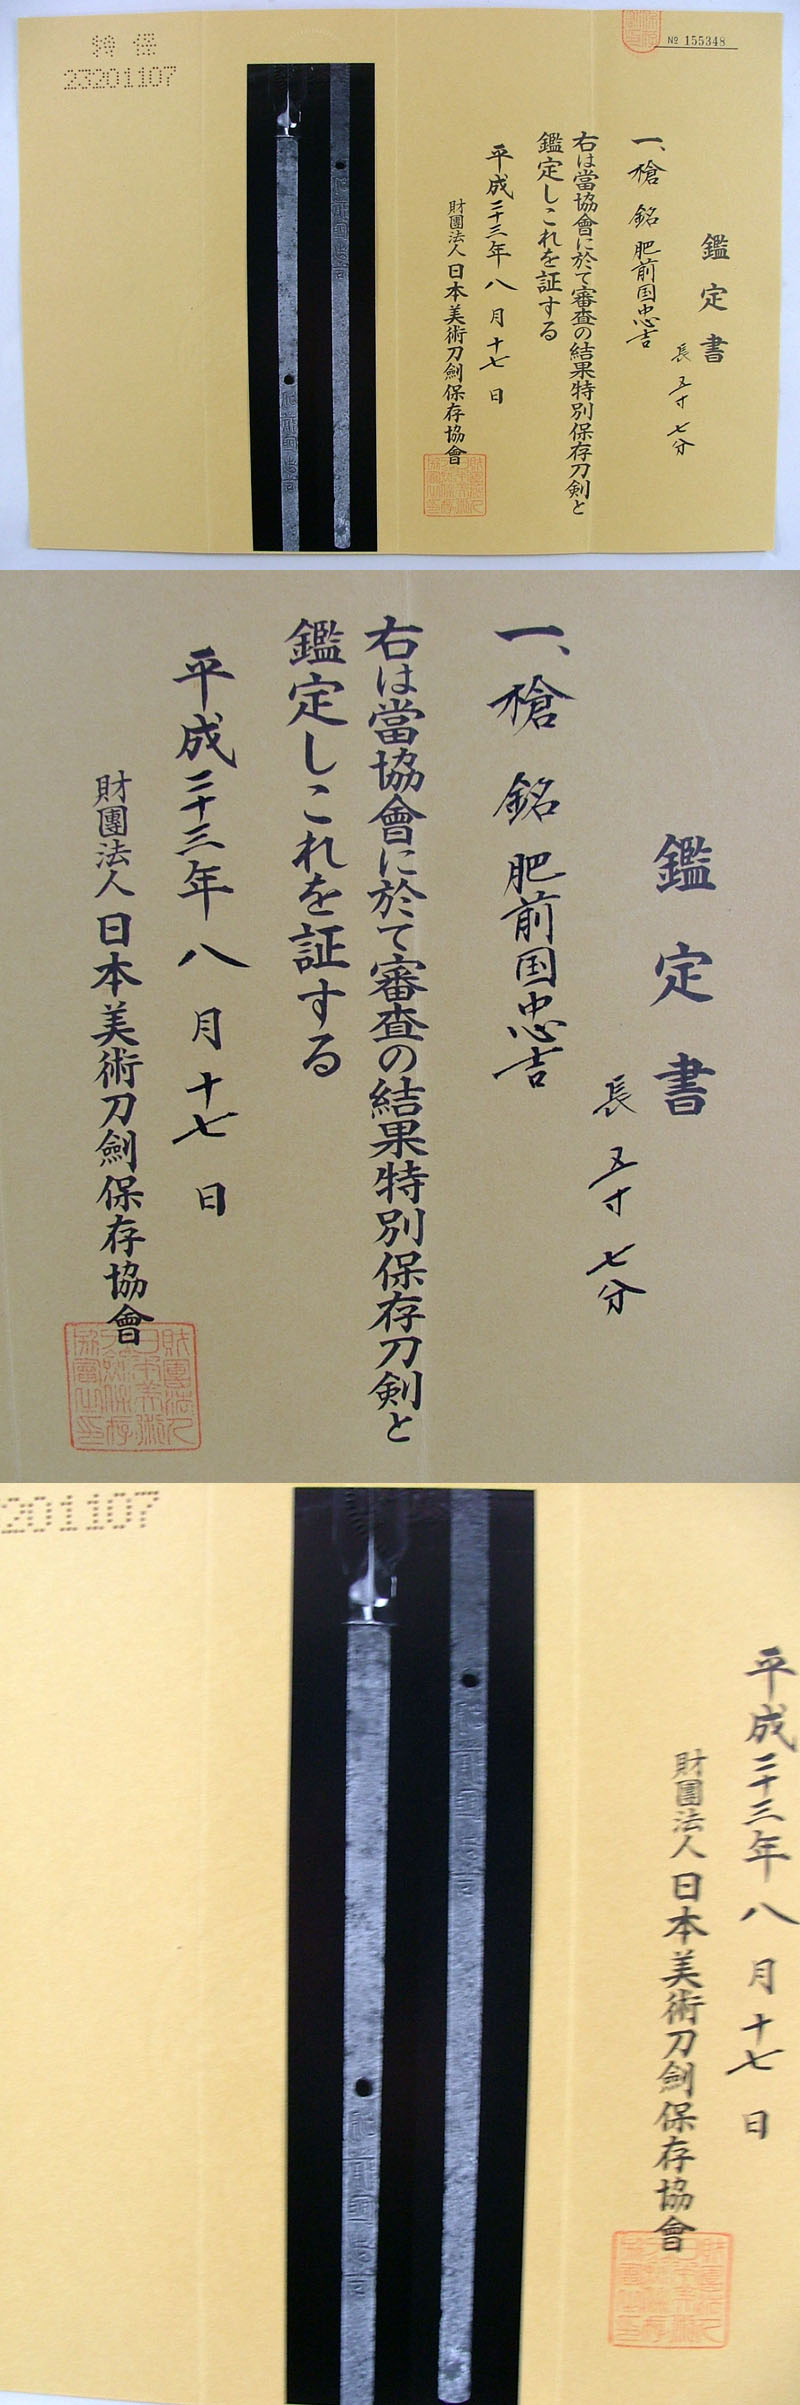 特保
23201107
№ 155348
鑑定書
長五寸七分
一、槍 銘 肥前国忠吉
右は當協會に於て審査の結果特別保存刀剣と
鑑定しこれを証する
平成二十三年八月十七日
財團法人日本美術刀劍保存協會
鑑定書
長五寸七分
一、槍 銘 肥前国忠吉
右は當協會に於て審査の結果特別保存刀剣と
鑑定しこれを証する
平成二十三年八月十七日
財團法人日本美術刀劍保存協會
201107
平成二十三年八月十七日
財團法人日本美術刀劍保存協會